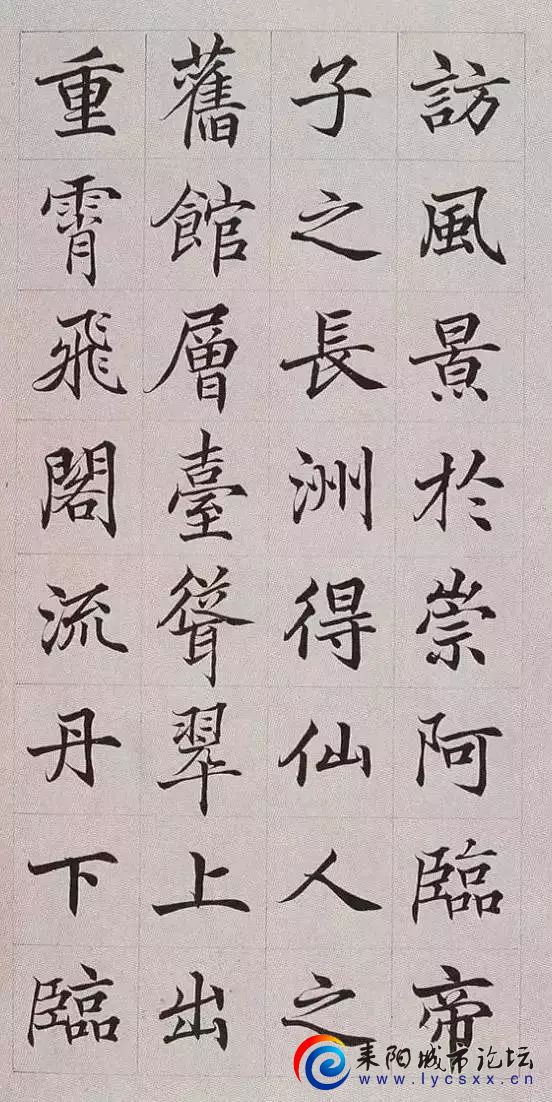 訪風景於崇阿臨帝
子之長洲得仙人之
舊館層臺聳翠上出
重霄飛閣流丹下臨
耒阳城市论坛
www.lycsxx.cn